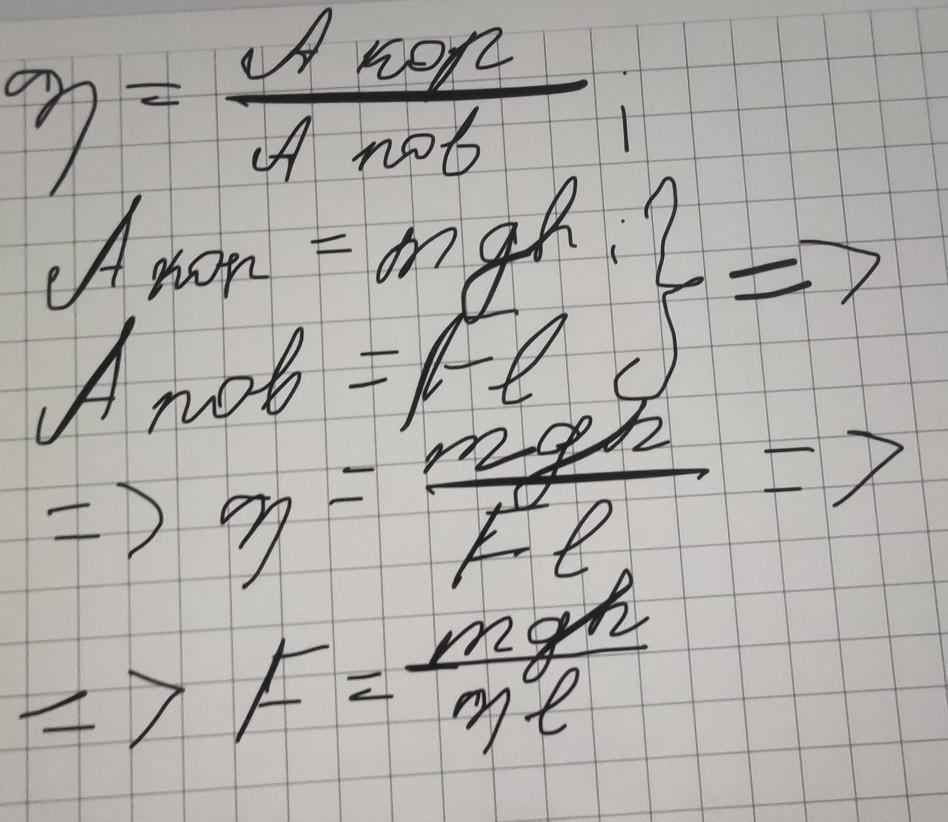 η = A кор / A пов ;
A кор = mgh ; } =>
A пов = F l
=> η = mgh / F l =>
=> F = mgh / η l